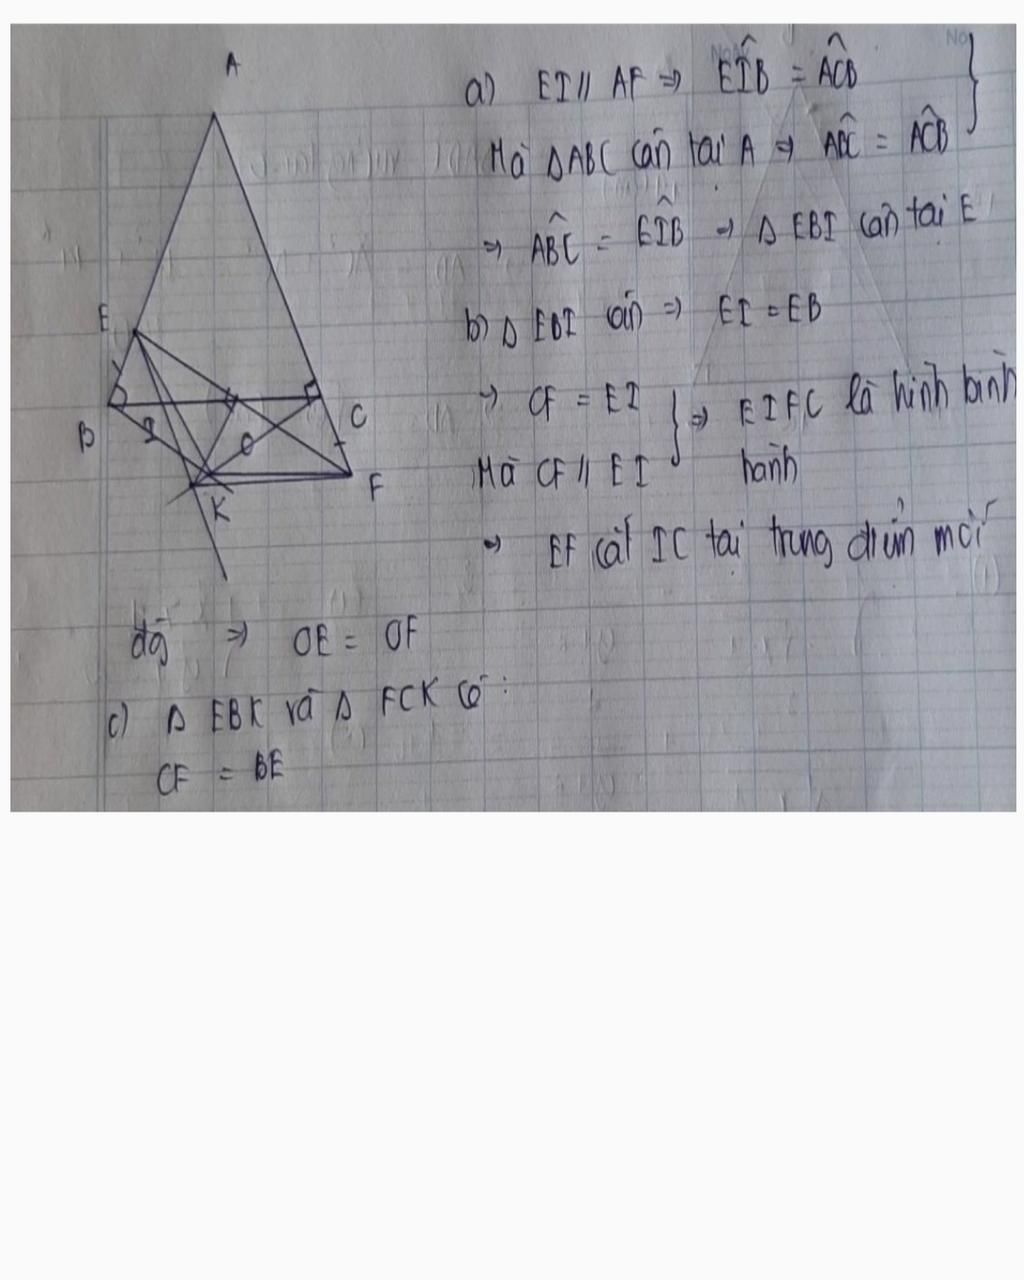 A
E
B
I
O
C
K
F
No
a) EI // AF ⇒ EÎB = AĈB
Mà ΔABC cân tại A ⇒ AB̂C = AĈB
⇒ AB̂C = EÎB ⇒ Δ EBI cân tại E
b) Δ EBI cân ⇒ EI = EB
⇒ CF = EI
Mà CF // EI
⇒ EIFC là hình bình
hành
⇒ EF cắt IC tại trung điểm mỗi
đg ⇒ OE = OF
c) Δ EBK và Δ FCK có :
CF = BE